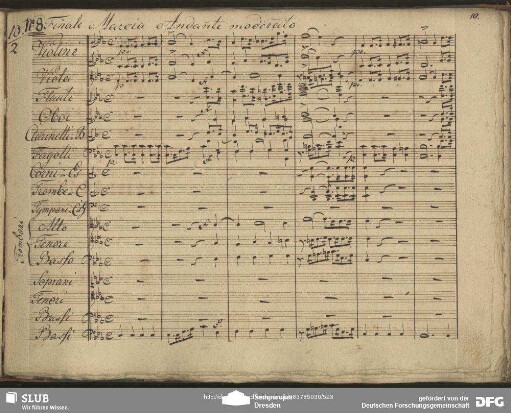 10.
2
№8. Finale Marcia Andante moderato
10.
Violino
Viole
Flauti
Oboi
Clarinetti B
Fagotti
Corni Es
Trombe C
Tympani
Tromboni
Alto
Tenore
Basso
Soprani
Tenori
Bassi
Bassi
SLUB
Wir führen Wissen.
Dresden
gefördert von der
Deutschen Forschungsgemeinschaft
DFG